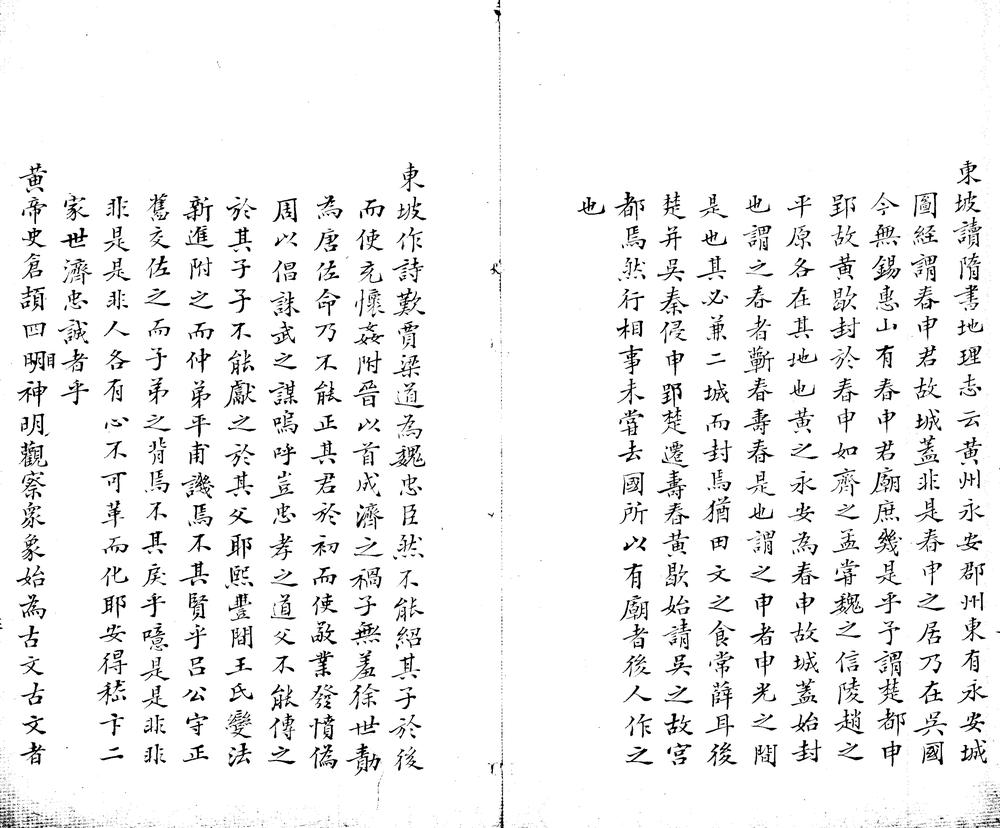 東坡讀隋書地理志云黄州永安郡州東有永安城
圖經謂春申君故城蓋非是春申之居乃在吳國
今無錫惠山有春申君廟庶幾是乎予謂楚都申
郢故黄歇封於春申如齊之孟嘗魏之信陵趙之
平原各在其地也黄之永安為春申故城蓋始封
也謂之春者蘄春壽春是也謂之申者申光之間
是也其必兼二城而封焉猶田文之食常薛耳後
楚并吳秦侵申郢楚遷壽春黄歇始請吳之故宫
都焉然行相事未嘗去國所以有廟者後人作之
也
東坡作詩歎賈梁道為魏忠臣然不能紹其子於後
而使充懷姦附晉以首成濟之禍子無羞徐世勣
為唐佐命乃不能正其君於初而使敬業發憤偽
周以倡誅武之謀嗚呼豈忠孝之道父不能傳之
於其子子不能獻之於其父耶熙豐間王氏變法
新進附之而仲弟平甫譏焉不其賢乎吕公守正
舊交佐之而子弟之背焉不其戾乎噫是是非非
非是是非人各有心不可革而化耶安得嵇卞二
家世濟忠誠者乎
黄帝史倉頡四目明神明觀察衆象始為古文古文者